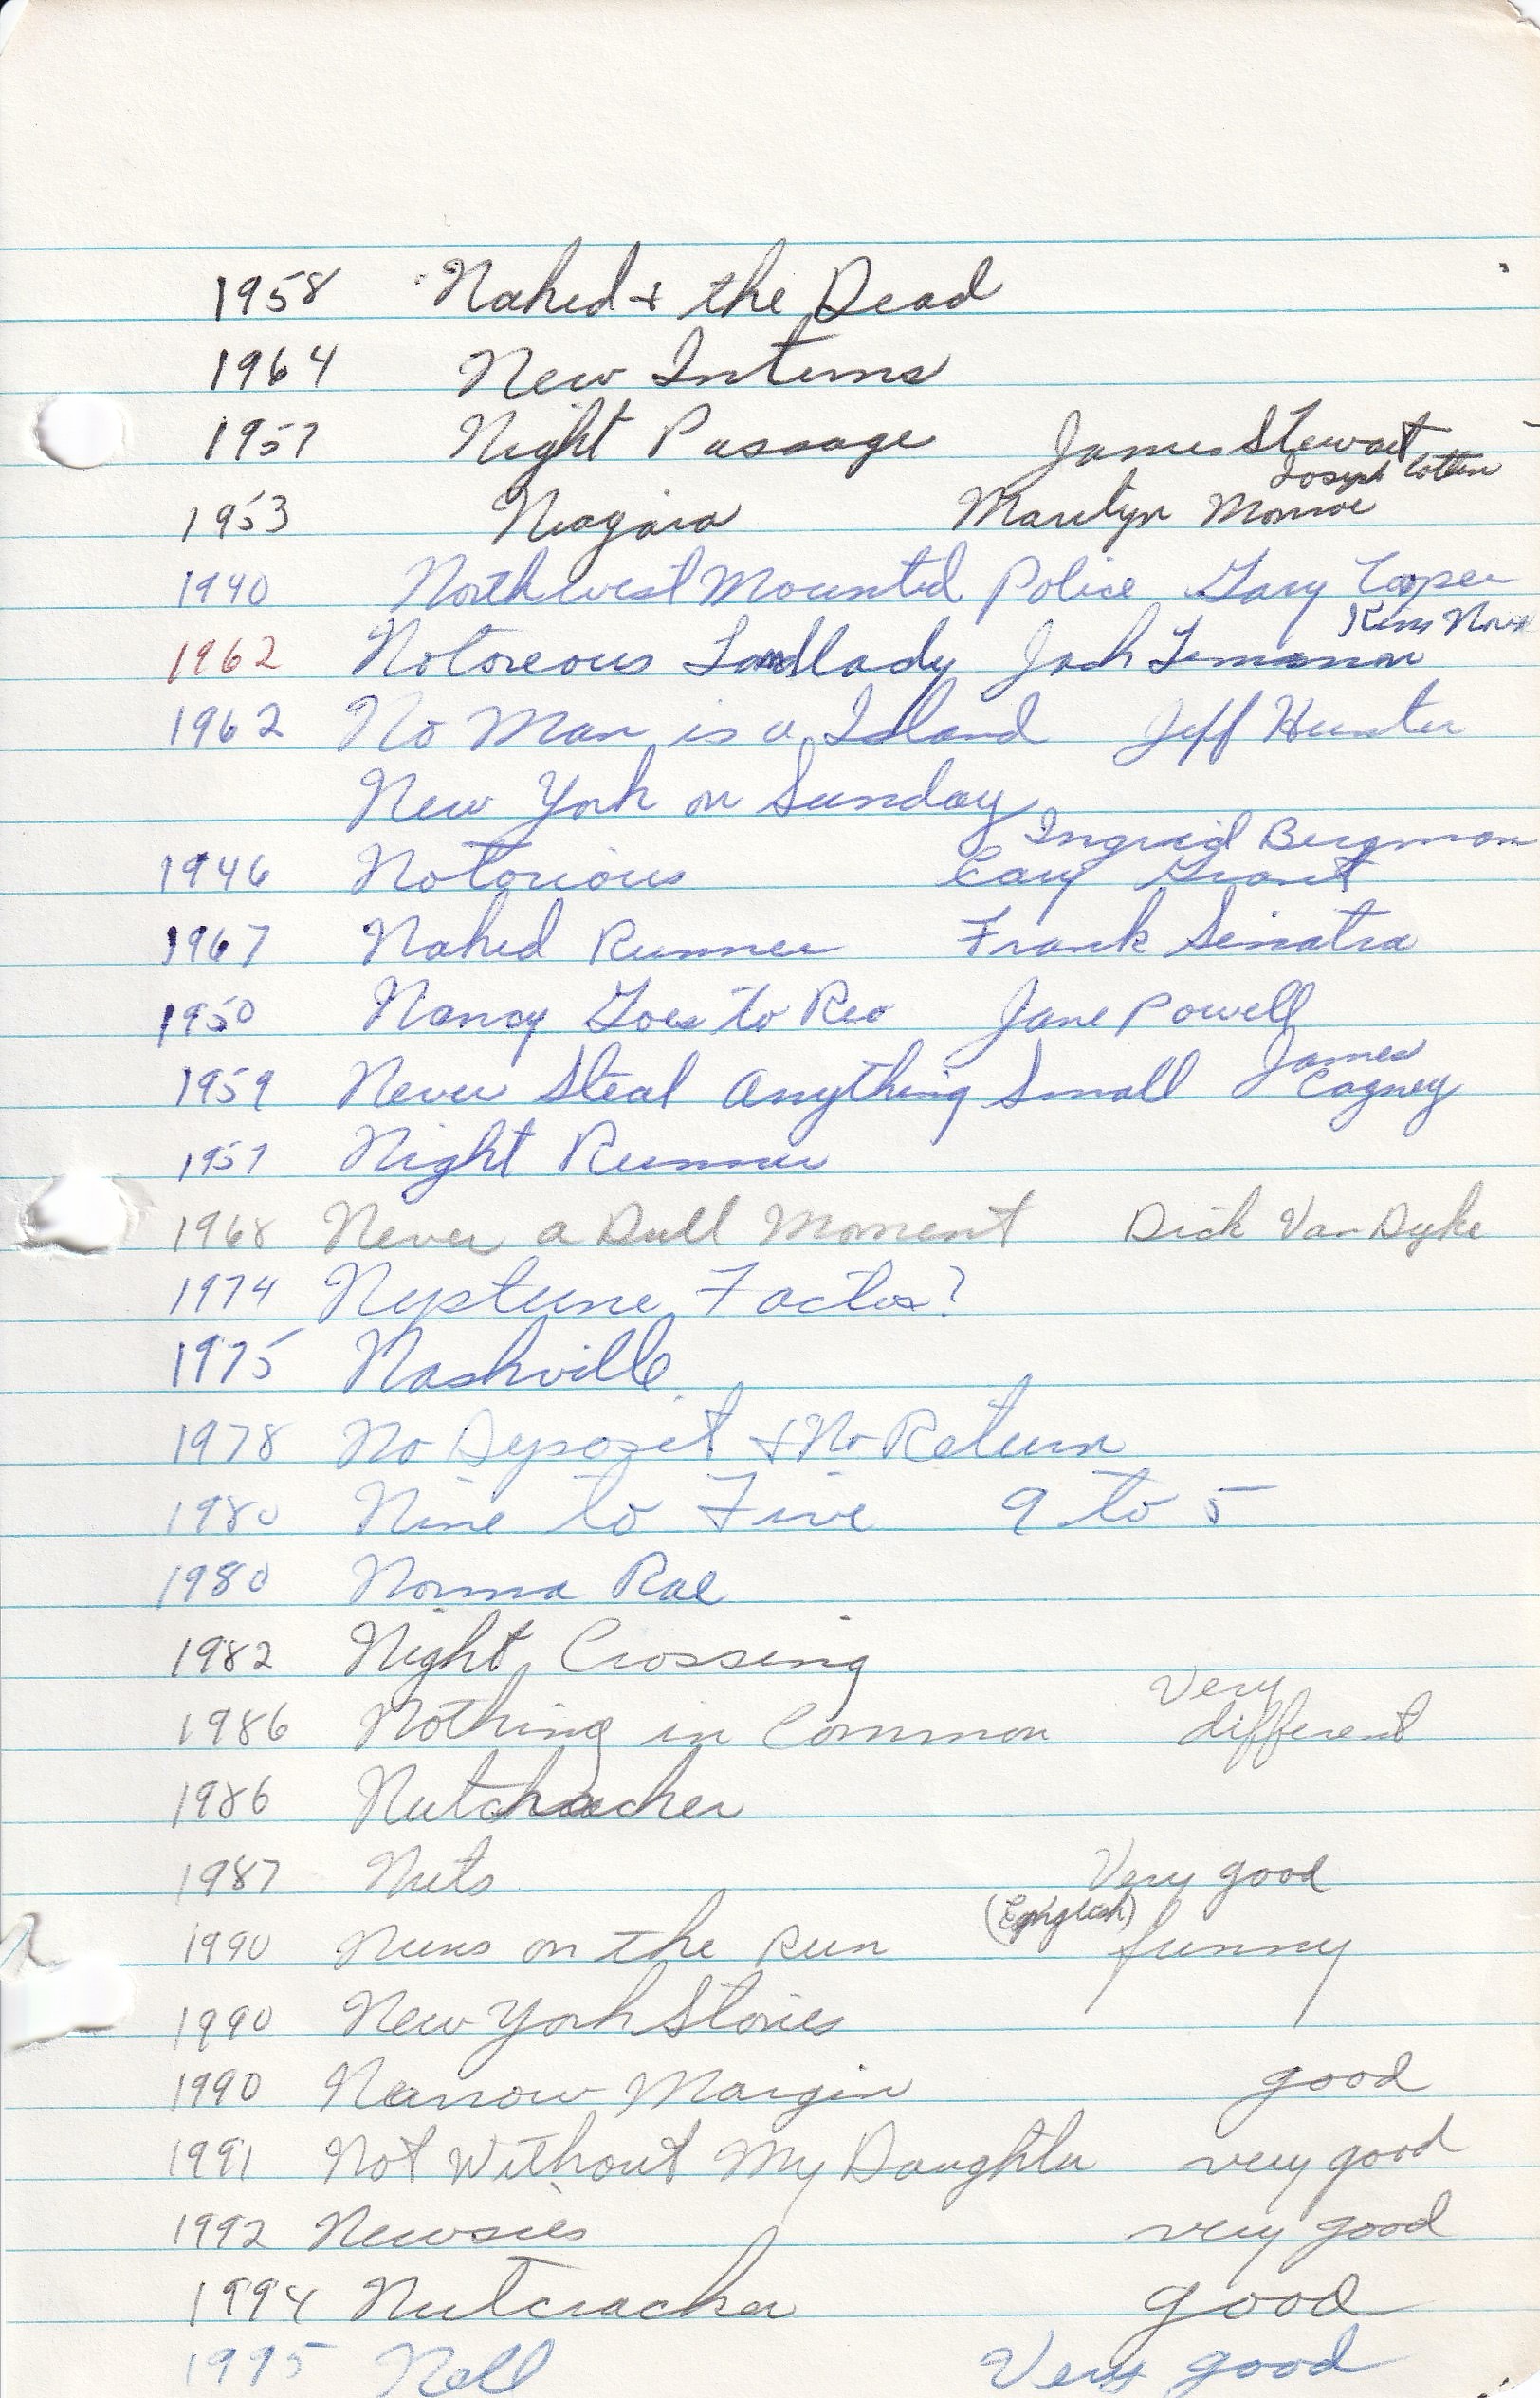 1958 Naked & the Dead
1964 New Interns
1957 Night Passage James Stewart
Joseph Cotten
1953 Niagara Marilyn Monroe
1940 Northwest Mounted Police Gary Cooper
Kim Novak
1962 Notoreous Landlady Jack Lemmon
1962 No Man is a Island Jeff Hunter
New York on Sunday
Ingrid Bergman
1946 Notorious Cary Grant
1967 Naked Runner Frank Sinatra
1950 Nancy Goes to Rio Jane Powell
James
1959 Never Steal Anything Small Cagney
1957 Night Runner
1968 Never a Dull Moment Dick Van Dyke
1974 Neptune Factor?
1975 Nashville
1978 No Deposit & No Return
1980 Nine to Five 9 to 5
1980 Norma Rae
1982 Night Crossing
Very
1986 Nothing in Common different
1986 Nutcracker
1987 Nuts Very good
(English)
1990 Nuns on the Run funny
1990 New York Stories
1990 Narrow Margin good
1991 Not Without My Daughter very good
1992 Newsies very good
1994 Nutcracker good
1995 Nell Very good